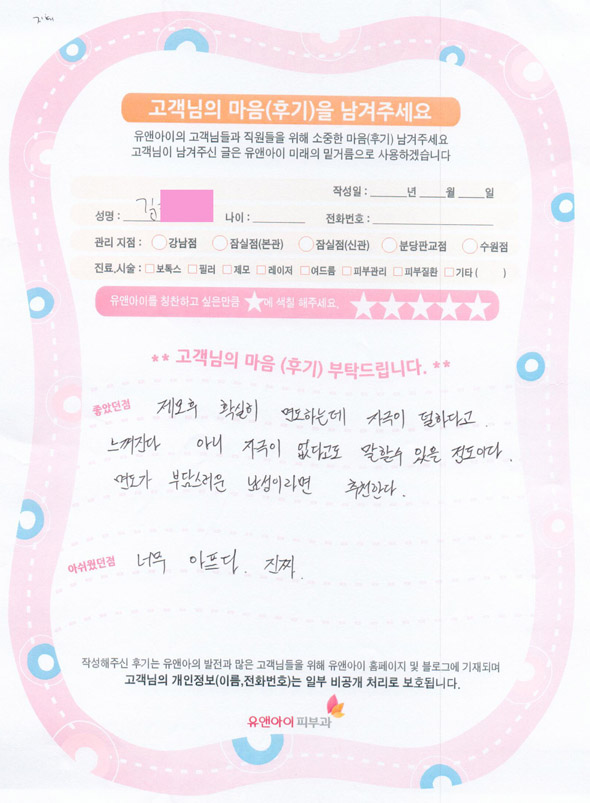 고객님의 마음(후기)을 남겨주세요
유앤아이의 고객님들과 직원들을 위해 소중한 마음(후기) 남겨주세요
고객님이 남겨주신 글은 유앤아이 미래의 밑거름으로 사용하겠습니다
작성일 : ______년 ____월 ____일
성명 : 김 나이 : ________ 전화번호 : ________
관리 지점 : 강남점 잠실점(본관) 잠실점(신관) 분당판교점 수원점
진료,시술 : □보톡스 □필러 □제모 □레이저 □여드름 □피부관리 □피부질환 □기타 ( )
유앤아이를 칭찬하고 싶은만큼 ★에 색칠 해주세요. ★★★★★
** 고객님의 마음 (후기) 부탁드립니다. **
좋았던점 제모후 확실히 면도하는데 자극이 덜하다고
느껴진다 아니 자극이 없다고도 말할수 있을 정도이다.
면도가 부담스러운 남성이라면 추천한다.
아쉬웠던점 너무 아프다. 진짜
작성해주신 후기는 유앤아의 발전과 많은 고객님들을 위해 유앤아이 홈페이지 및 블로그에 기재되며
고객님의 개인정보(이름,전화번호)는 일부 비공개 처리로 보호됩니다.
유앤아이피부과